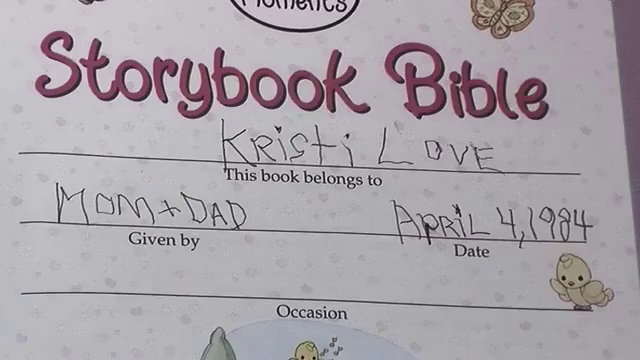 Moments
Storybook Bible
KRisti LOVE
This book belongs to
MOM + DAD APRiL 4, 1984
Given by Date
Occasion